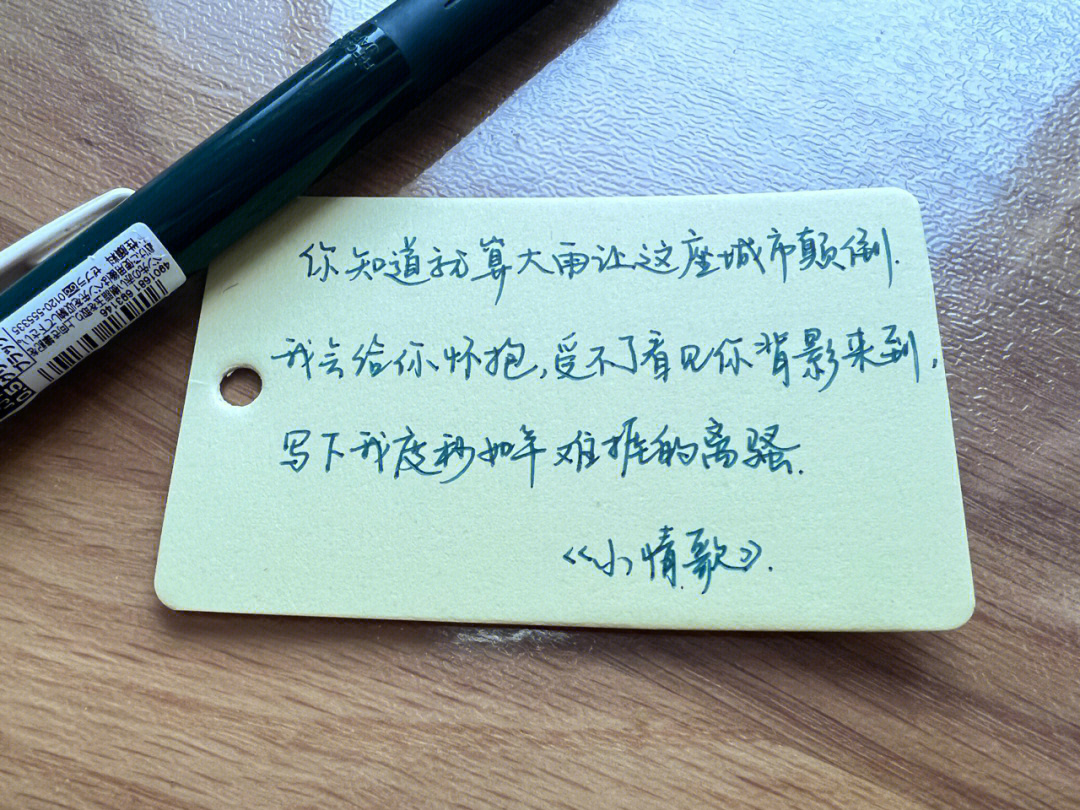 你知道就算大雨让这座城市颠倒.
我会给你怀抱,受不了看见你背影来到,
写下我度秒如年难捱的离骚.
《小情歌》.
490168 693146
0120-555335